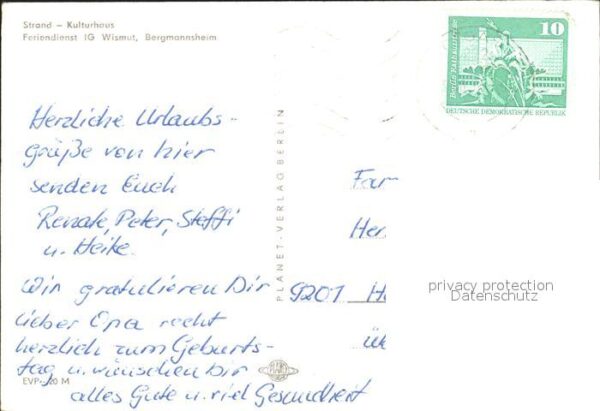 Strand – Kulturhaus
Feriendienst IG Wismut, Bergmannsheim
10
Berlin Rathausstraße
DEUTSCHE DEMOKRATISCHE REPUBLIK
Herzliche Urlaubs-
grüße von hier
senden Euch
Renate, Peter, Steffi
u. Heike.
Wir gratulieren Dir
lieber Opa recht
herzlich zum Geburts-
tag u. wünschen Dir
alles Gute u. viel Gesundheit
EVP: -,20 M
PLANET-VERLAG BERLIN
PLANET
Fam
Her
9201 H
üb
privacy protection
Datenschutz